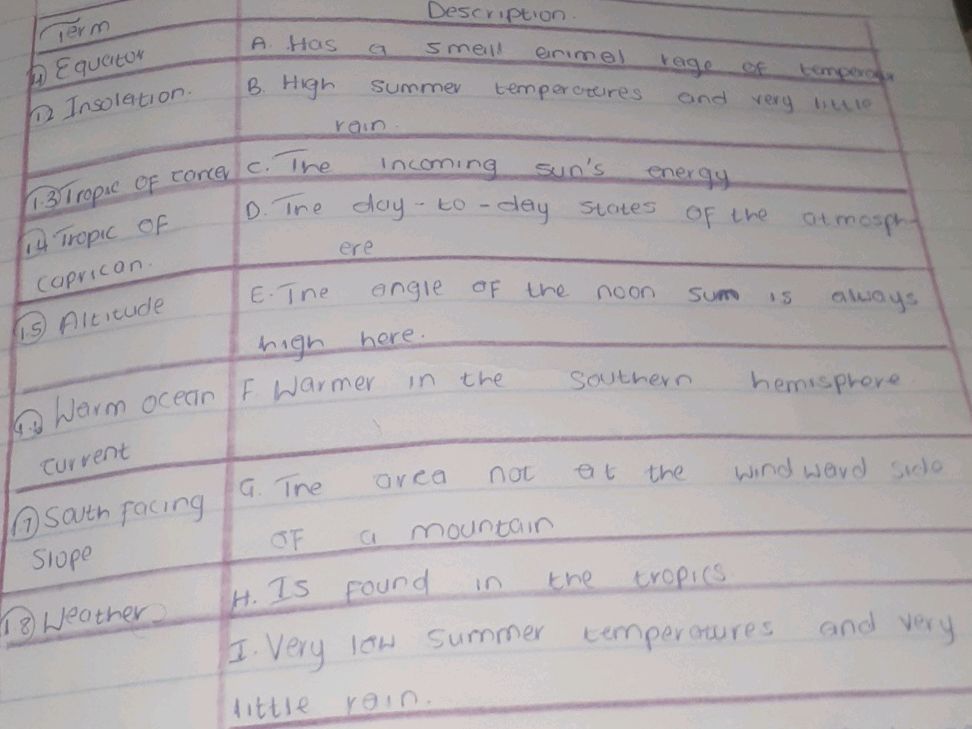 Term
Description.
1.1 Equator
A. Has a small animel rage of temperatu
1.2 Insolation.
B. High summer temperatures and very little
rain.
1.3 Tropic of cancer
C. The incoming sun's energy
1.4 Tropic of
D. The day-to-day states of the atmosph-
capricon.
ere
1.5 Altitude
E. The angle of the noon sum is always
high here.
Warm ocean
F Warmer in the southern hemisphere
current
G. The area not at the windward side
South facing
of a mountain
slope
H. Is found in the tropics
1.8 Weather
I. Very low summer temperatures and very
little rain.